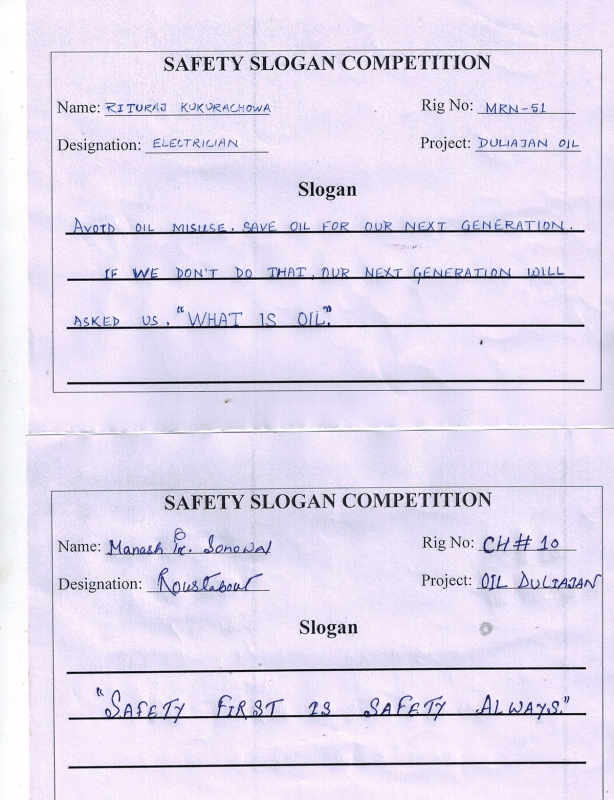 SAFETY SLOGAN COMPETITION
Name: RITURAJ KUKURACHOWA Rig No: MRN-51
Designation: ELECTRICIAN Project: DULIAJAN OIL
Slogan
AVOID OIL MISUSE. SAVE OIL FOR OUR NEXT GENERATION.
IF WE DON'T DO THAT, OUR NEXT GENERATION WILL
ASKED US. "WHAT IS OIL."
SAFETY SLOGAN COMPETITION
Name: Manash Kr. Sonowal Rig No: CH#10
Designation: Roustabout Project: OIL DULIAJAN
Slogan
"SAFETY FIRST IS SAFETY ALWAYS."